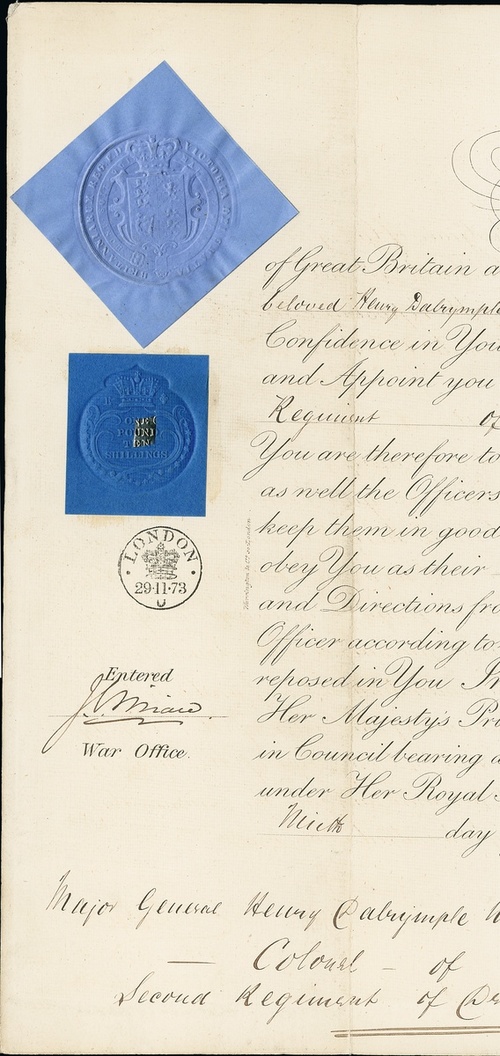 VICTORIA
BRITANNIAR
of Great Britain a
beloved Henry Dalrymple
Confidence in You
and Appoint you
Regiment of
You are therefore to
as well the Officers
keep them in good
obey You as their
and Directions fro
Officer according to
reposed in You In
Her Majesty's Pri
in Council bearing d
under Her Royal
Ninth day
ONE
POUND
TEN
SHILLINGS
LONDON
29·11·73
U
Entered
War Office.
Major General Henry Dalrymple W
— Colonel — of
Second Regiment of